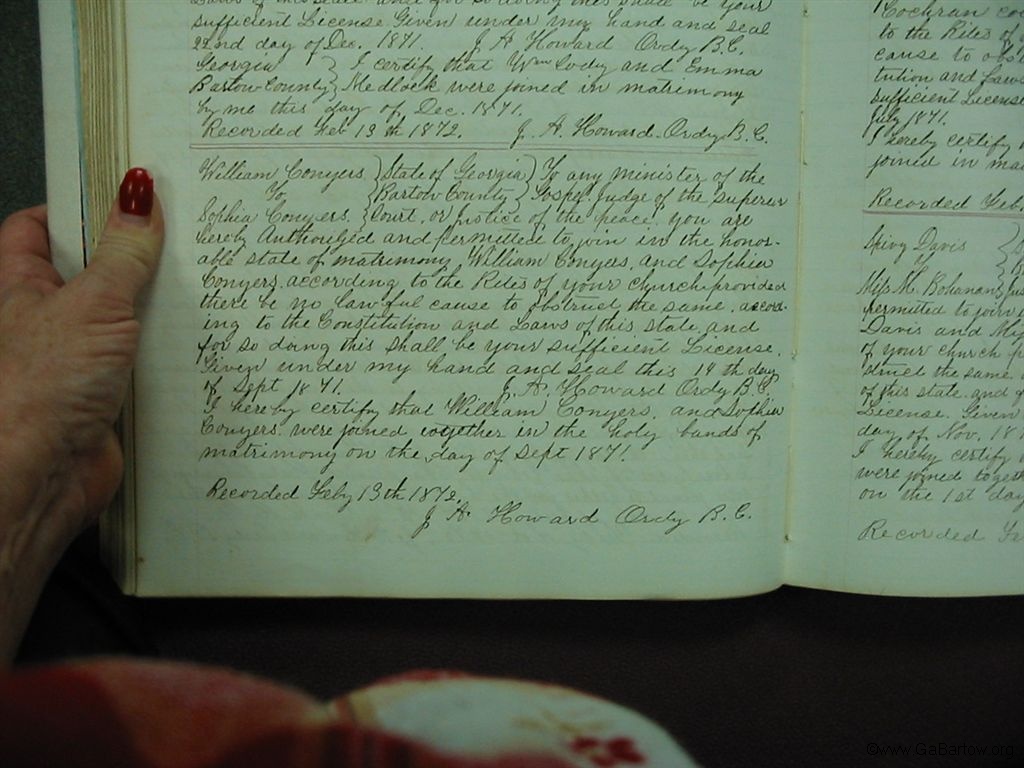 sufficient License Given under my hand and seal
22nd day of Dec. 1871. J A Howard Ordy B.C.
Georgia } I certify that Wm and Emma
Bartow County } Medlock were joined in matrimony
by me this day of Dec. 1871.
Recorded Feb 13th 1872. J. A. Howard Ordy B. C.
William Conyers } State of Georgia } To any minister of the
To } Bartow County } Gospel Judge of the Superior
Sophia Conyers. } Court, or justice of the peace. you are
hereby Authorized and permitted to join in the honor-
able state of matrimony William Conyers, and Sophia
Conyers, according to the Rites of your church provided
there be no lawful cause to obstruct the same, accord-
ing to the Constitution and Laws of this state, and
for so doing this shall be your sufficient License.
Given under my hand and seal this 14th day
of Sept 1871. J. A. Howard Ordy B.C.
I hereby certify that William Conyers, and Sophia
Conyers. were joined together in the holy bands of
matrimony on the day of Sept 1871.
Recorded Feby 13th 1872.
J A. Howard Ordy B. C.
Cochran
to the Rites of
cause to
tution and Laws
sufficient License
July 1871.
I hereby certify
joined in
Recorded Feb.
Spivy Davis }
To }
Miss M. Bohanan }
permitted to join
Davis and
of your church
struct the same
of this state, and
License. Given
day of Nov. 18
I hereby certify
were joined
on the 1st day
Recorded
©www.GaBartow.org